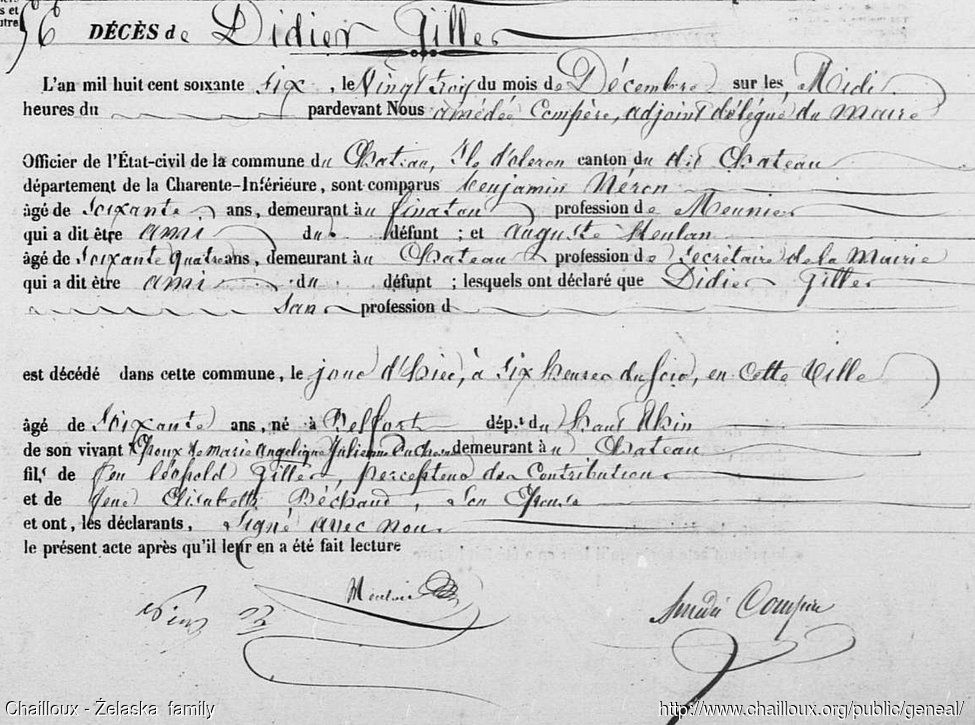 56 DÉCÈS de Didier Gilles
L'an mil huit cent soixante six, le Vingt trois du mois de Décembre sur les Midi
heures du pardevant Nous amédée Compère, adjoint délégué du Maire
Officier de l'État-civil de la commune du Chateau, Ile d'oleron canton du dit Chateau
département de la Charente-Inférieure, sont comparus benjamin Néron
âgé de Soixante ans, demeurant au profession de Meunier
qui a dit être ami du défunt ; et auguste
âgé de Soixante quatre ans, demeurant au Chateau profession de Secrétaire de la Mairie
qui a dit être ami du défunt ; lesquels ont déclaré que Didier Gilles
San profession d
est décédé dans cette commune, le jour d'hier, à Six heures du Soir, en cette Ville
âgé de Soixante ans, né à Belfort dépt du haut Rhin
de son vivant Epoux de marie angelique Julienne demeurant au Chateau
fils de feu léopold Gilles, percepteur des Contributions
et de feue Elisabeth Béchaud, Son Epouse
et ont, les déclarants, Signé avec nous
le présent acte après qu'il leur en a été fait lecture
Amédée Compère
Chailloux - Żelaska family http://www.chailloux.org/public/geneal/